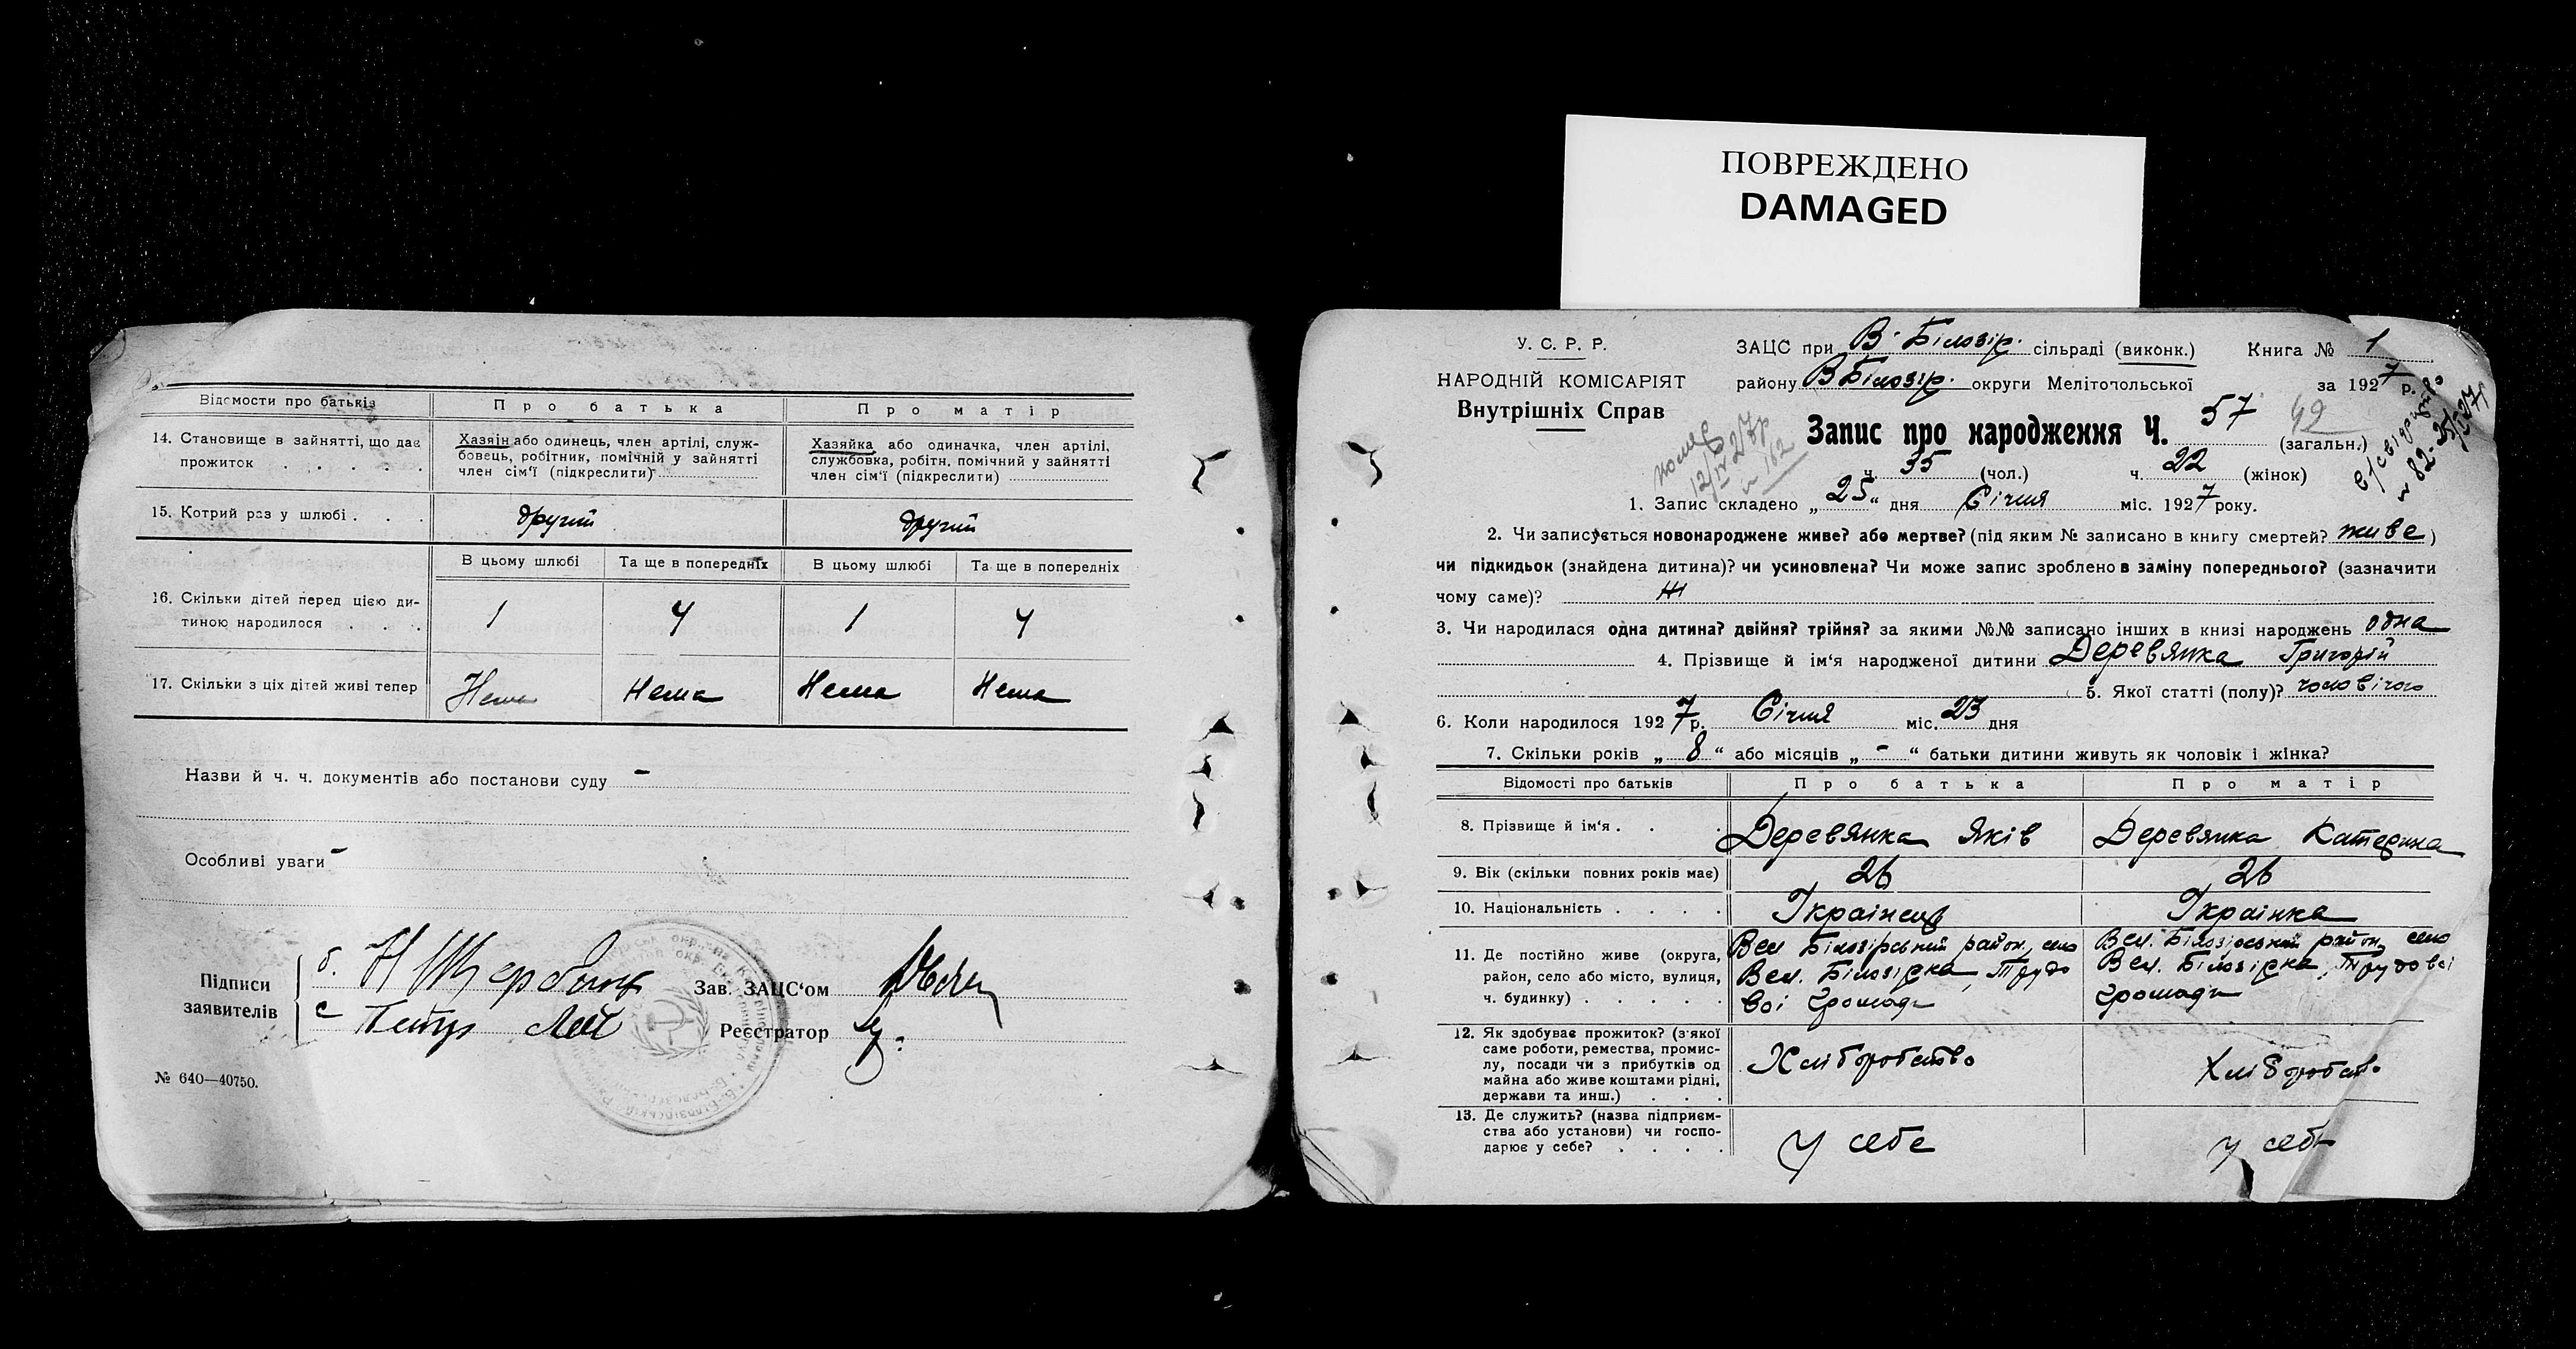 ПОВРЕЖДЕНО
DAMAGED
Відомости про батьків
Про батька
Про матір
14. Становище в зайнятті, що дає прожиток . . . . .
Хазяін або одинець, член артілі, служ-
бовець, робітник, помічній у зайнятті
член сім'ї (підкреслити)
Хазяйка або одиначка, член артілі,
службовка, робітн. помічний у зайнятті
член сім'ї (підкреслити)
15. Котрий раз у шлюбі . . . другий другий
В цьому шлюбі Та ще в попередніх В цьому шлюбі Та ще в попередніх
16. Скільки дітей перед цією ди-
тиною народилося . . . 1 4 1 4
17. Скільки з ціх дітей живі тепер Нема Нема Нема Нема
Назви й ч. ч. документів або постанови суду -
Особливі уваги -
Підписи
заявителів
Зав. ЗАЦС'ом
Реєстратор
№ 640—40750.
У. С. Р. Р.
НАРОДНІЙ КОМІСАРІЯТ
Внутрішніх Справ
ЗАЦС при В-Білозір. сільраді (виконк.) Книга № 1
району ВБілозір. округи Мелітопольської за 1927 р.
Запис про народження Ч. 57 (загальн.)
49
ч. 35 (чол.) ч. 22 (жінок)
1. Запис складено „25“ дня Січня міс. 1927 року.
2. Чи записується новонароджене живе? або мертве? (під яким № записано в книгу смертей? живе)
чи підкидьок (знайдена дитина)? чи усиновлена? Чи може запис зроблено в заміну попереднього? (зазначити
чому саме)?
3. Чи народилася одна дитина? двійня? трійня? за якими №№ записано інших в книзі народжень одна
4. Прізвище й ім'я народженої дитини Деревянка Григорій
5. Якої статті (полу)? чоловічого
6. Коли народилося 1927 р. Січня міс. 23 дня
7. Скільки років „8“ або місяців „-“ батьки дитини живуть як чоловік і жінка?
Відомості про батьків Про батька Про матір
8. Прізвище й ім'я . . . Деревянка Яків Деревянка Катерина
9. Вік (скільки повних років має) 26 26
10. Національність . . . . Українець Українка
11. Де постійно живе (округа,
район, село або місто, вулиця,
ч. будинку) . . . . .
Вел Білозірський район, село
Вел. Білозірка, Трудо
вої громади
Вел. Білозірський район, село
Вел. Білозірка, Трудової
громади
12. Як здобуває прожиток? (з якої
саме роботи, ремества, промис-
лу, посади чи з прибутків од
майна або живе коштами рідні,
держави та инш.) . . .
Хліборобство Хліборобство
13. Де служить? (назва підприєм-
ства або установи) чи госпо-
дарює у себе? . . . .
У себе у себе